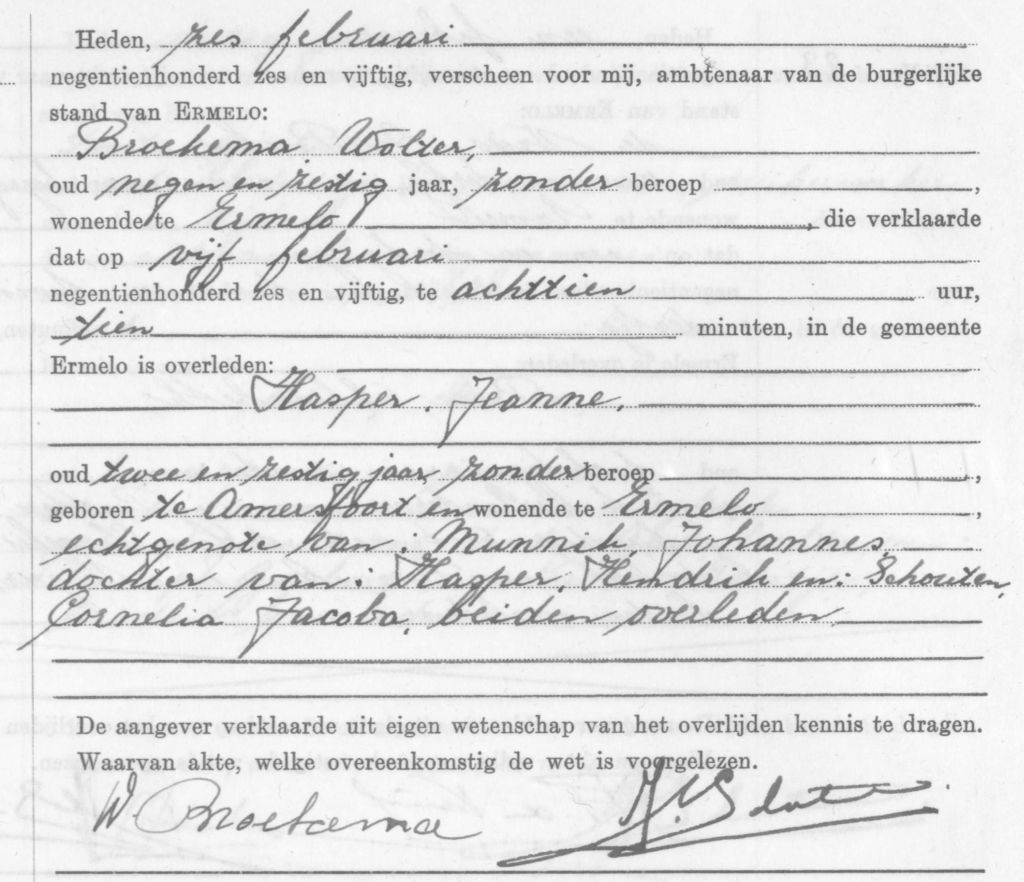 Heden, zes februari
negentienhonderd zes en vijftig, verscheen voor mij, ambtenaar van de burgerlijke
stand van ERMELO:
Broekema, Wolter,
oud negen en zestig jaar, zonder beroep ,
wonende te Ermelo , die verklaarde
dat op vijf februari
negentienhonderd zes en vijftig, te achttien uur,
tien minuten, in de gemeente
Ermelo is overleden:
Hasper, Jeanne,
oud twee en zestig jaar, zonder beroep ,
geboren te Amersfoort en wonende te Ermelo ,
echtgenote van: Munnik, Johannes,
dochter van: Hasper, Hendrik en: Schouten,
Cornelia Jacoba, beiden overleden.
De aangever verklaarde uit eigen wetenschap van het overlijden kennis te dragen.
Waarvan akte, welke overeenkomstig de wet is voorgelezen.
W Broekema